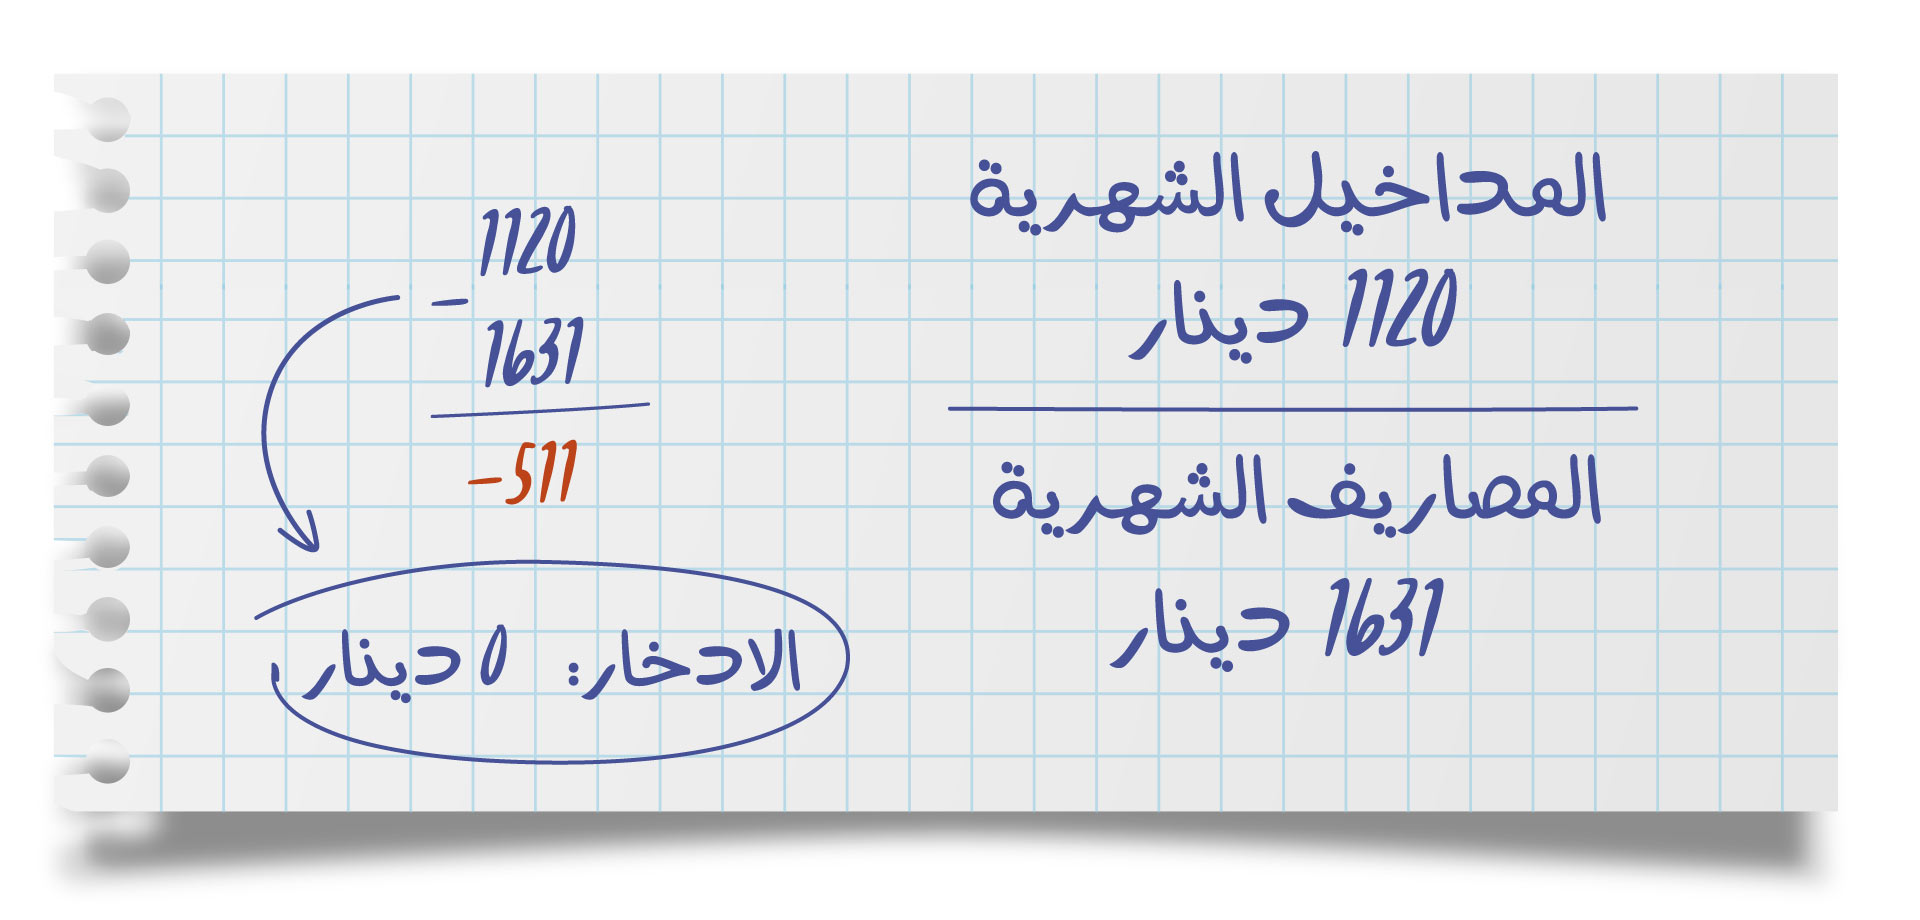 المداخيل الشهرية
1120 دينار
المصاريف الشهرية
1631 دينار
1120
–
1631
-511
الادخار: 0 دينار